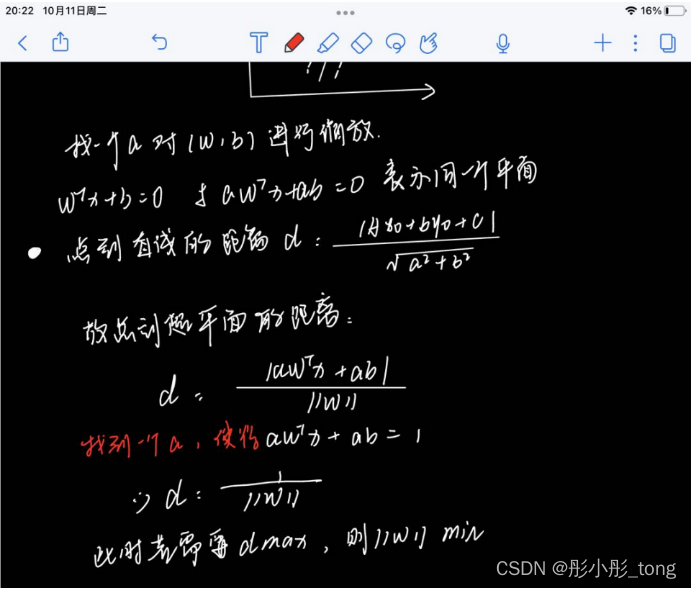 20:22 10月11日周二
16%
找一个a对(w,b)进行缩放.
wᵀx+b=0 与 awᵀx+ab=0 表示同一个平面
点到直线的距离d: |Ax₀+by₀+c| / √a²+b²
故点到超平面的距离:
d = |awᵀx+ab| / ||w||
找到一个a,使得awᵀx+ab=1
∴d= 1 / ||w||
此时若需要dmax,则||w||min
CSDN @彤小彤_tong